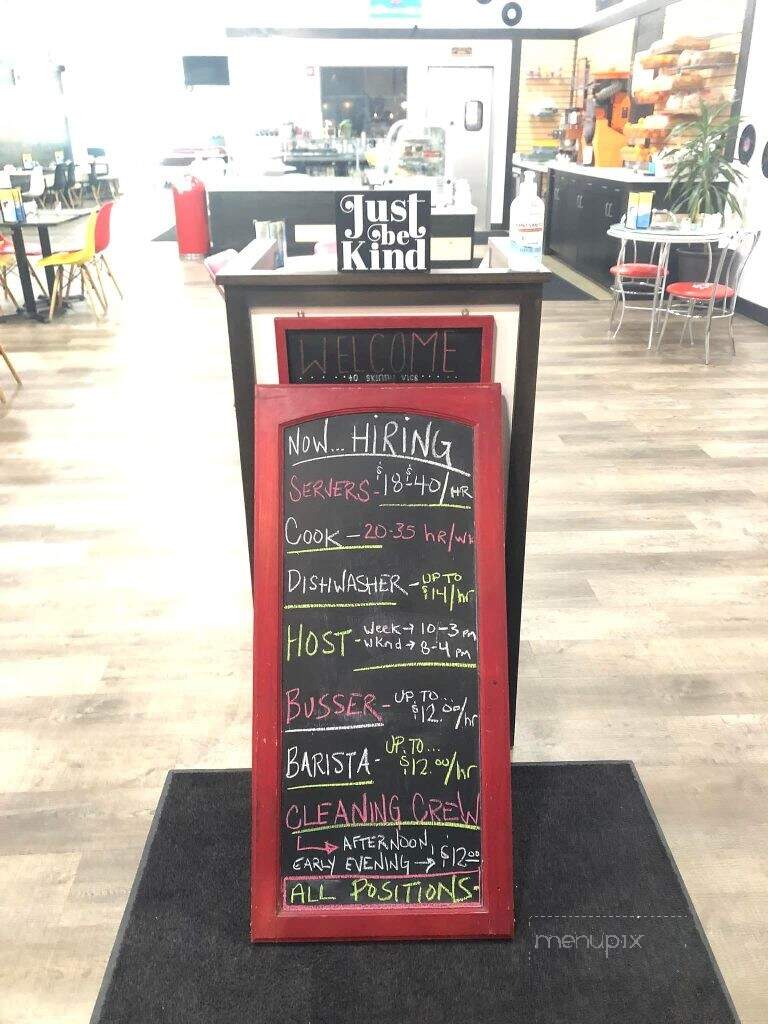 Just
be
Kind
WELCOME
to SKINNY VICS
NOW... HIRING
SERVERS - $18-$40/HR
COOK - 20-35 hR/WK
DISHWASHER - UP TO
$14/hr
HOST - Week→ 10-3 PM
WKnd→ 8-4 PM
BUSSER - UP TO...
$12.00/hr
BARISTA - UP TO...
$12.00/hr
CLEANING CREW
AFTERNOON,
EARLY EVENING → $12.00
ALL POSITIONS.
menupix